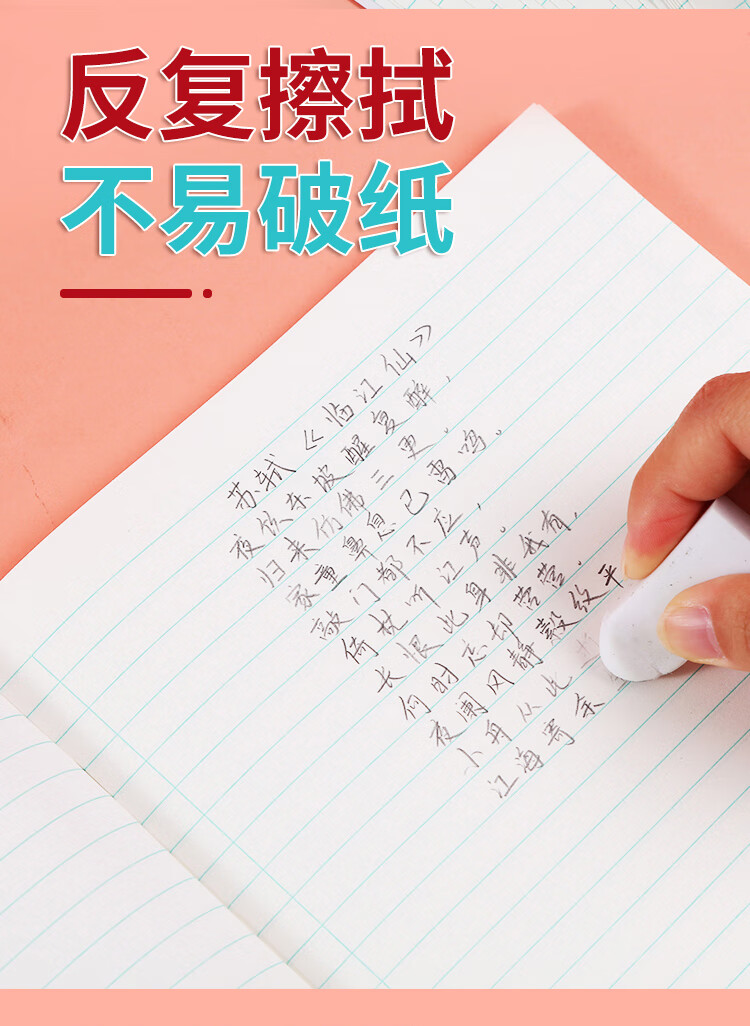 反复擦拭
不易破纸
苏轼《临江仙》
夜饮东坡醒复醉，
归来仿佛三更。
家童鼻息已雷鸣。
敲门都不应，
倚杖听江声。
长恨此身非我有，
何时忘却营营。
夜阑风静縠纹平
小舟从此
江海寄余